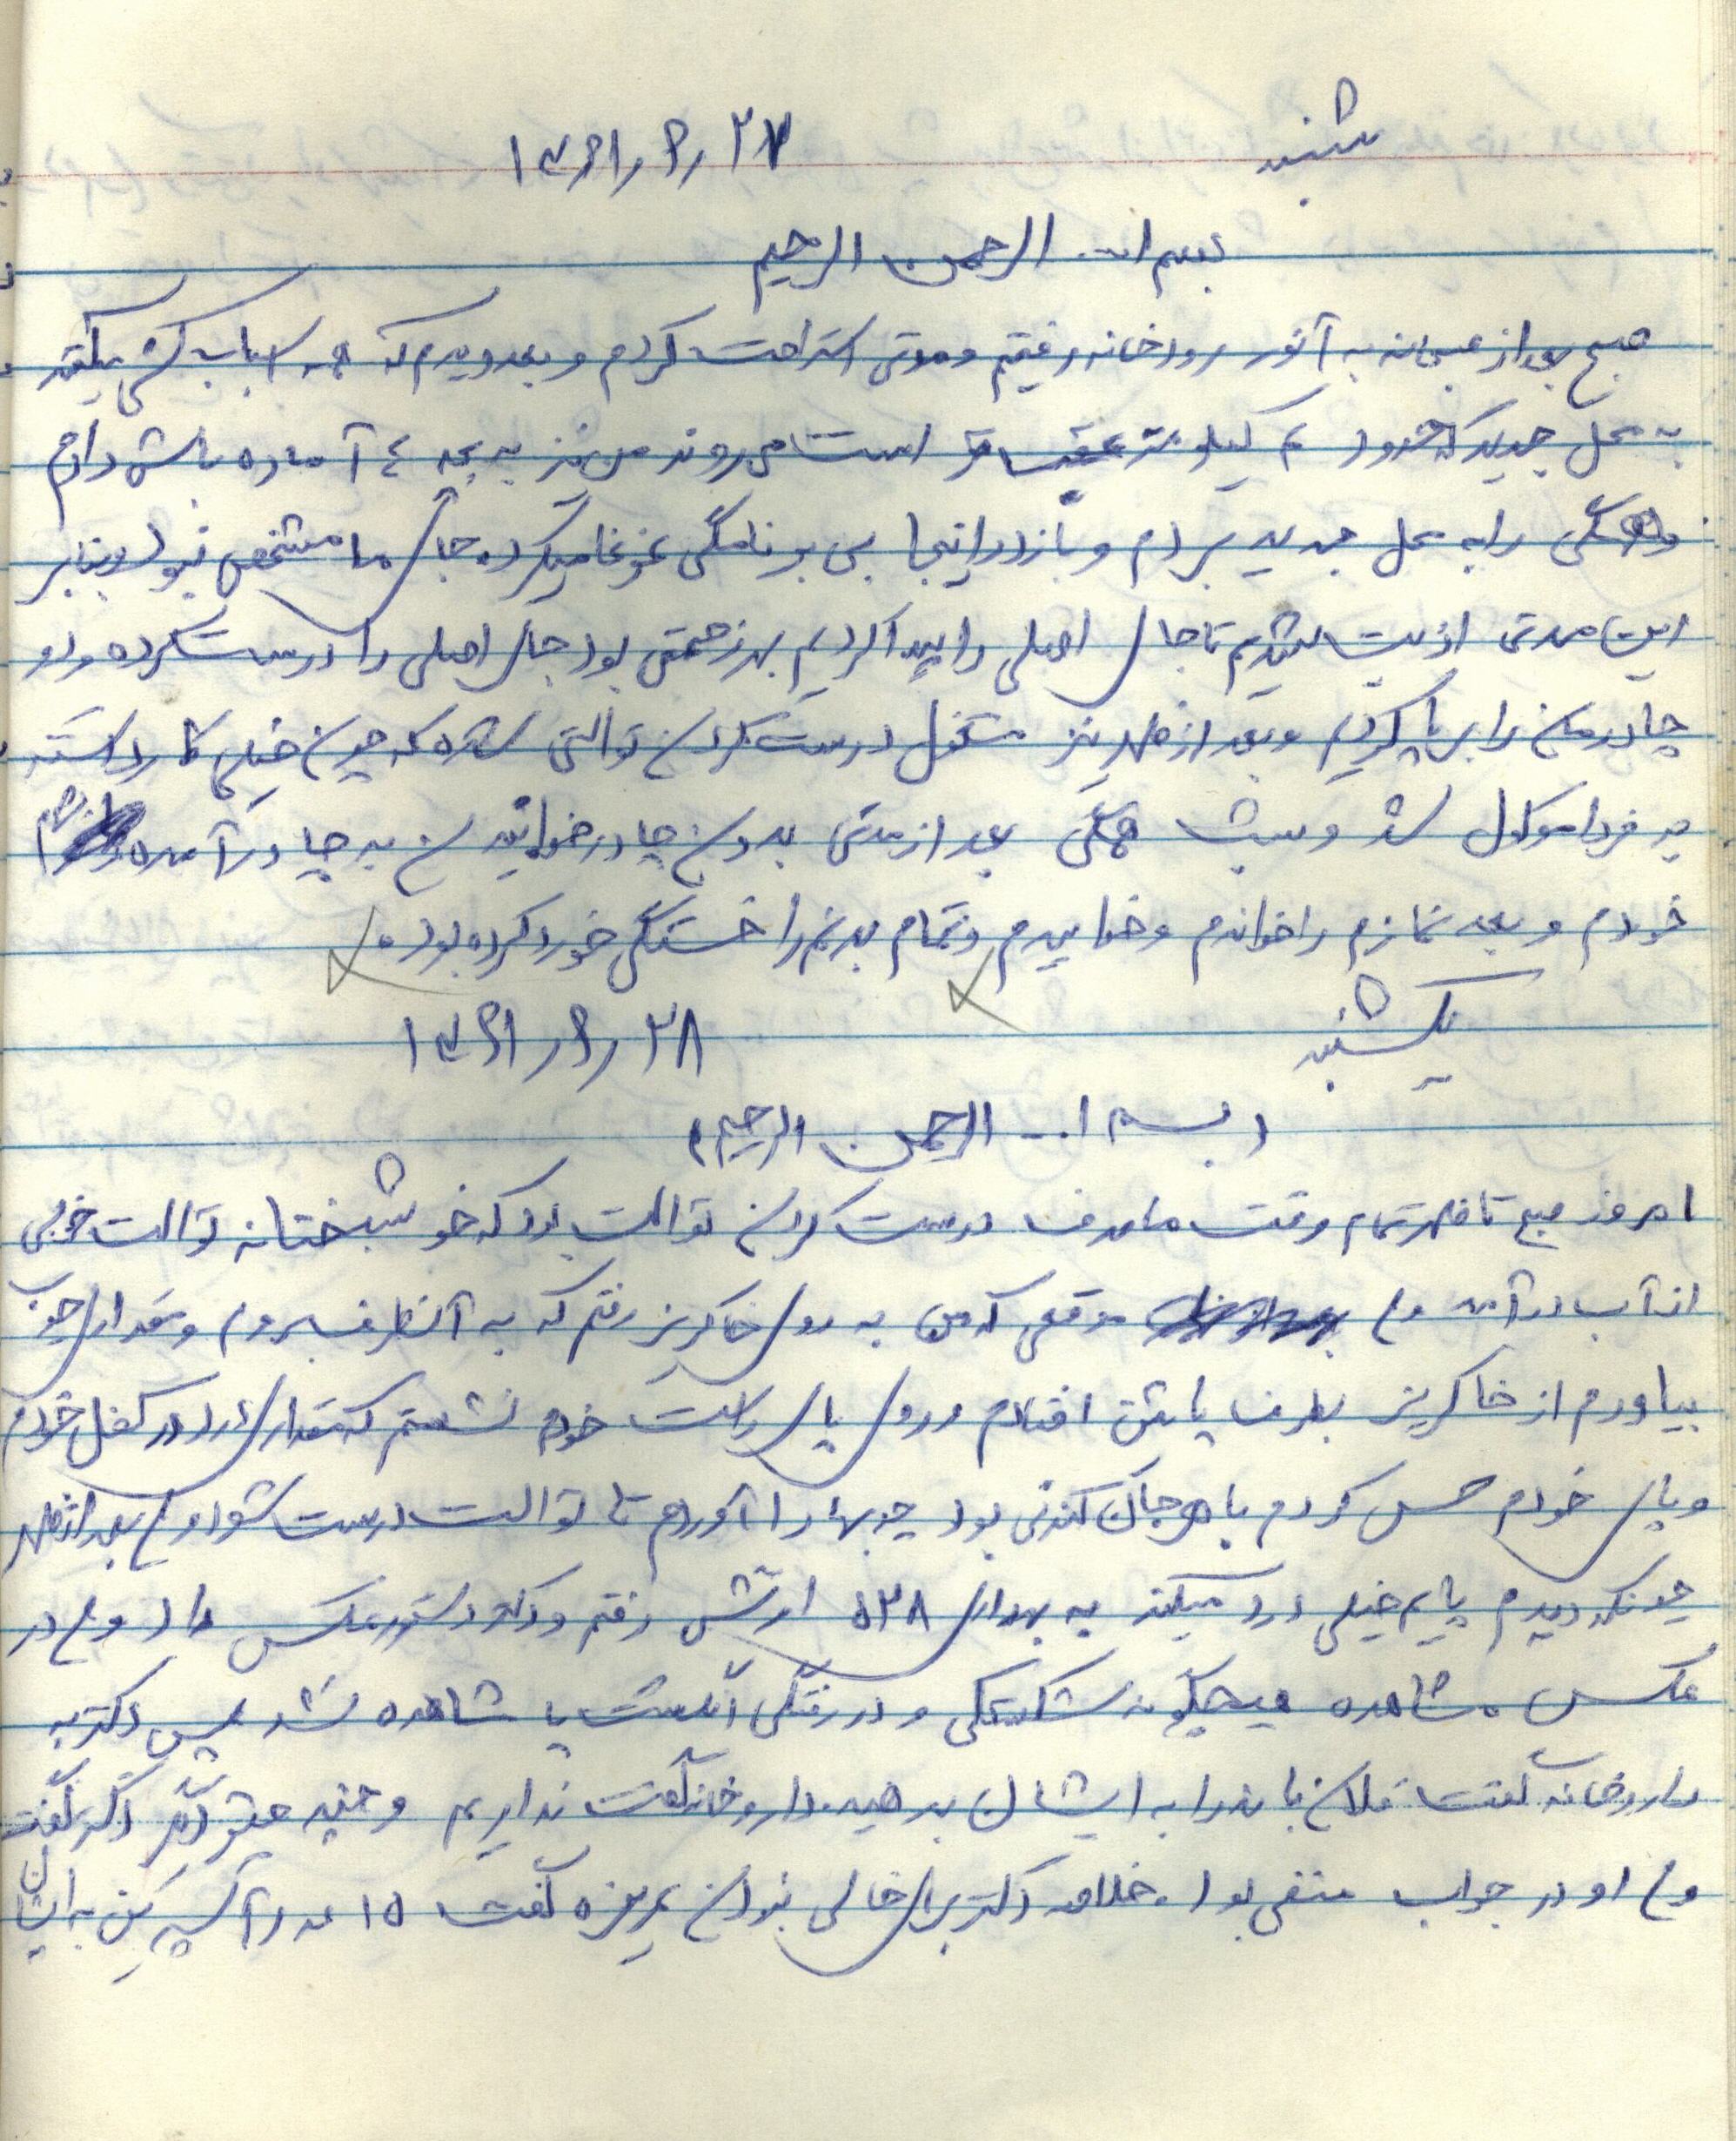 شنبه ۱۳۶۱/۶/۲۷
بسم ا... الرحمن الرحیم
صبح بعد از صبحانه به آنور رودخانه رفتیم و مدتی استراحت کردم و بعد دیدم که همه اسباب کشی میکنند
به محل جدید که حدود ۲ کیلومتر عقب تر است می روند من نیز به بچه ها آماده باش دادم
و همگی را به محل جدید بردم و باز در اینجا بی برنامگی غوغا میکرد جای ما مشخص نبود و بنابر
این مدتی اذیت شدیم تا جای اصلی را پیدا کردیم بهر زحمتی بود جای اصلی را درست کرده و دو
چادرمان را برپا کردیم و بعد از ظهر نیز مشغول درست کردن توالتی شده که چون خیلی کار داشته
به فردا موکول شد و شب همگی بعد از مدتی بدون چادر خوابیدن به چادر آمده و شام
خوردم و بعد نمازم را خواندم و خوابیدم و تمام بدنم را خستگی خورد کرده بود.
یکشنبه ۱۳۶۱/۶/۲۸
بسم ا... الرحمن الرحیم
امروز صبح تا ظهر تمام وقت ما صرف درست کردن توالت بود که خوشبختانه توالت خوبی
از آب در آمد ولی موقعی که من به روی خاکریز رفتم که به آنطرف بروم و مقداری چوب
بیاورم از خاکریز بطرف پائین افتادم و روی پای راست خودم نشستم که مقداری درد در کفل خودم
و پای خودم حس کردم با هر جان کندنی بود چوبها را آوردم تا توالت درست شود ولی بعد از ظهر
چونکه دیدم پایم خیلی درد میکند به بهداری ۵۲۸ ارتش رفتم و دکتر دستور عکس داد ولی در
عکس مشاهده هیچگونه شکستگی و در رفتگی انگشت پا مشاهده نشد سپس دکتر به
داروخانه گفت فلان باند را به ایشان بدهید. داروخانه گفت نداریم و چند چیز دیگر دکتر گفت
ولی او در جواب منفی بود. خلاصه دکتر برای خالی نبودن عریضه گفت ۱۵ عدد آسپرین به ایشان